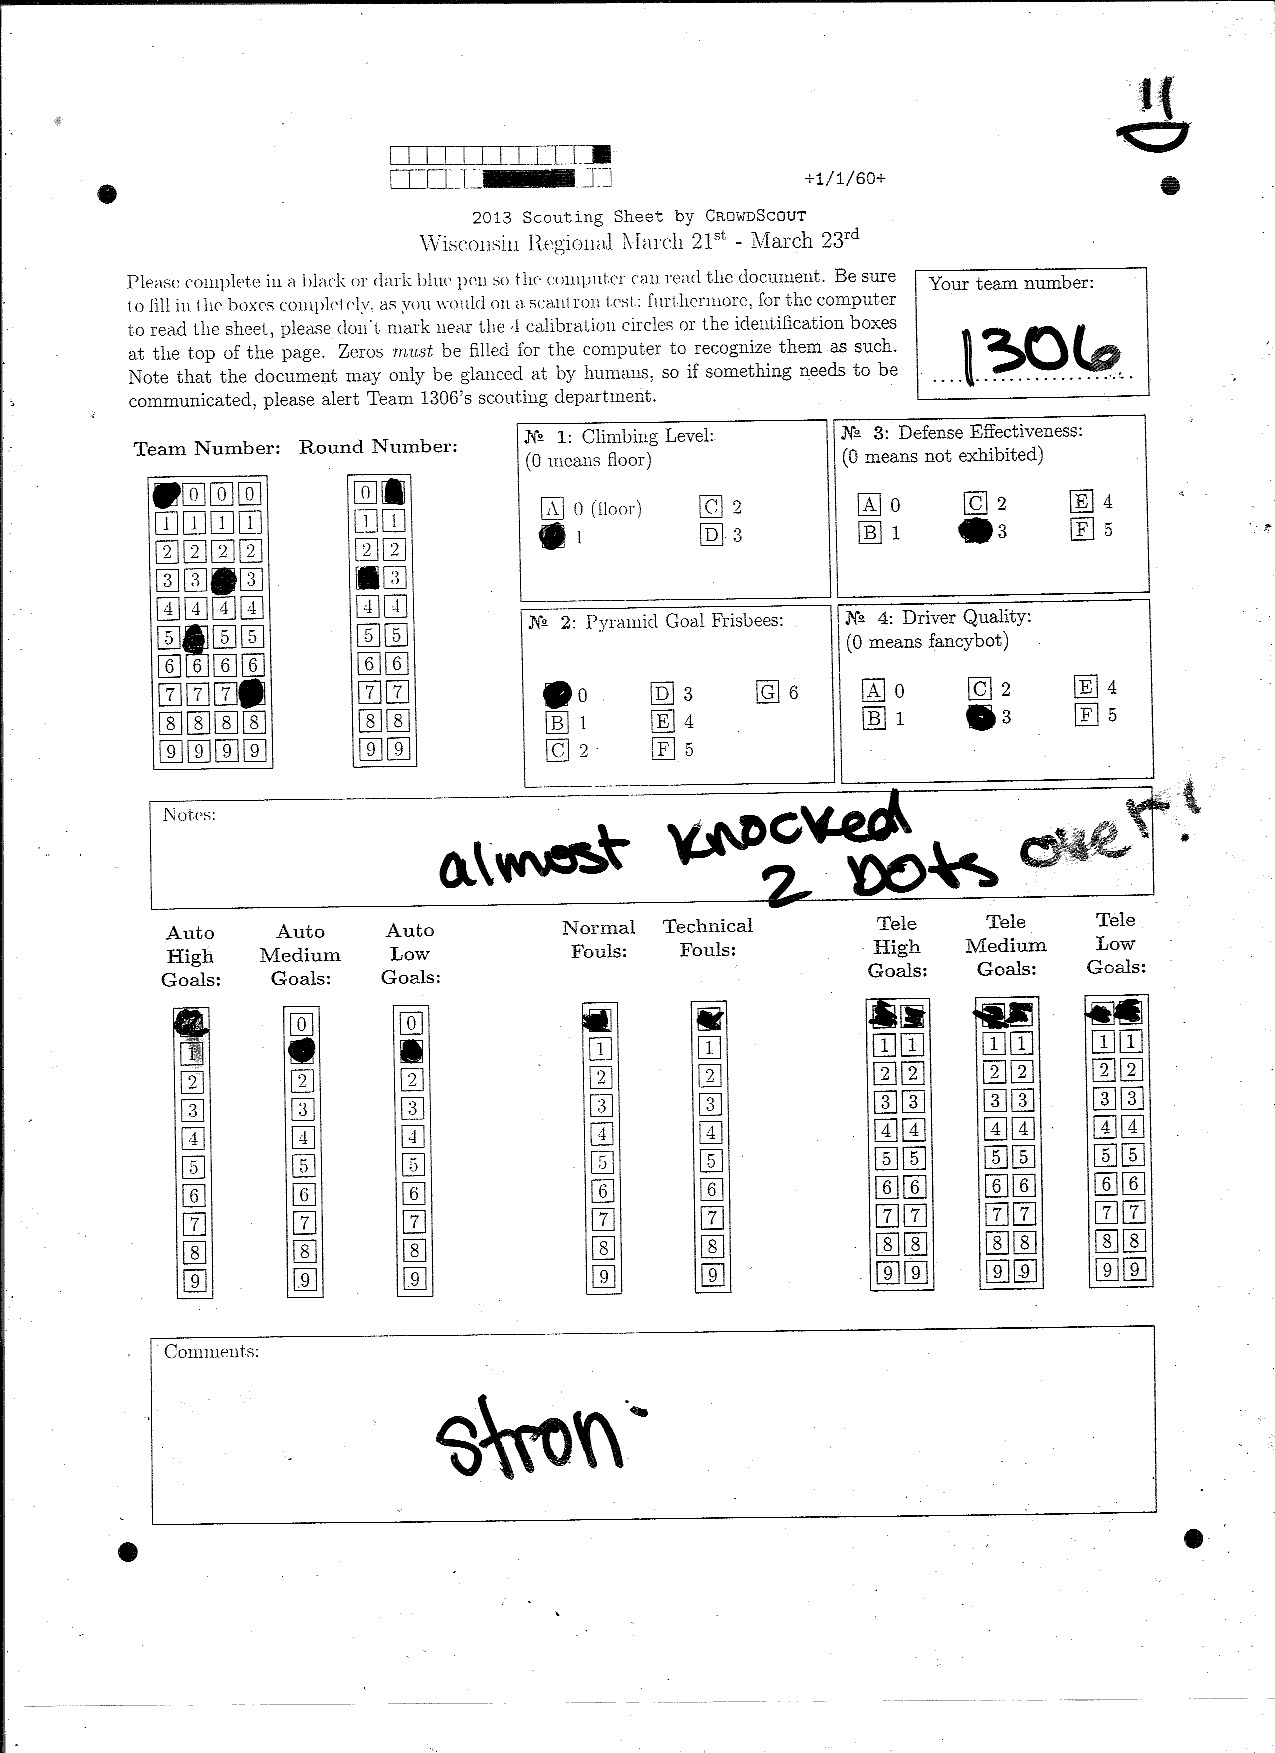 +1/1/60+
2013 Scouting Sheet by CROWDSCOUT
Wisconsin Regional March 21st - March 23rd
Please complete in a black or dark blue pen so the computer can read the document. Be sure
to fill in the boxes completely, as you would on a scantron test; furthermore, for the computer
to read the sheet, please don't mark near the 4 calibration circles or the identification boxes
at the top of the page. Zeros must be filled for the computer to recognize them as such.
Note that the document may only be glanced at by humans, so if something needs to be
communicated, please alert Team 1306's scouting department.
Your team number:
1306
Team Number: Round Number:
0 0 0 0
1 1 1 1 1 1
2 2 2 2 2 2
3 3 3 3
4 4 4 4 4 4
5 5 5 5 5
6 6 6 6 6 6
7 7 7 7 7
8 8 8 8 8 8
9 9 9 9 9 9
№ 1: Climbing Level:
(0 means floor)
A 0 (floor) C 2
1 D 3
№ 3: Defense Effectiveness:
(0 means not exhibited)
A 0 C 2 E 4
B 1 3 F 5
№ 2: Pyramid Goal Frisbees:
0 D 3 G 6
B 1 E 4
C 2 F 5
№ 4: Driver Quality:
(0 means fancybot)
A 0 C 2 E 4
B 1 3 F 5
Notes:
almost knocked
2 bots over!
Auto High Goals: Auto Medium Goals: Auto Low Goals: Normal Fouls: Technical Fouls: Tele High Goals: Tele Medium Goals: Tele Low Goals:
0 0
1 1 1 1 1 1 1 1 1
2 2 2 2 2 2 2 2 2 2 2
3 3 3 3 3 3 3 3 3 3 3
4 4 4 4 4 4 4 4 4 4 4
5 5 5 5 5 5 5 5 5 5 5
6 6 6 6 6 6 6 6 6 6 6
7 7 7 7 7 7 7 7 7 7 7
8 8 8 8 8 8 8 8 8 8 8
9 9 9 9 9 9 9 9 9 9 9
Comments:
stron